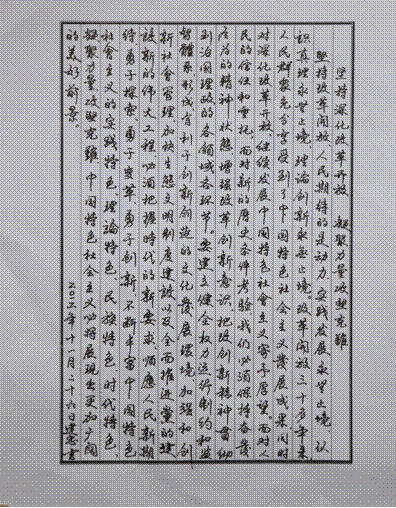 坚持深化改革开放 凝聚力量攻坚克难
坚持改革开放,人民期待的是动力。实践发展永无止境,认
识真理永无止境,理论创新永无止境。改革开放三十多年来,
人民群众充分享受到了中国特色社会主义发展成果,同时
对深化改革开放、继续发展中国特色社会主义寄予厚望。面对人
民的信任和重托,面对新的历史条件考验,我们必须保持奋发
有为的精神状态,增强改革创新意识,把改革创新精神贯彻
到治国理政的各领域各环节。要建立健全权力运行制约和监
督体系,形成有利于创新创造的文化发展环境,加强和创
新社会管理,加快生态文明制度建设,以及全面推进党的建
设新的伟大工程,必须把握时代的新要求,顺应人民新期
待,勇于探索、勇于变革、勇于创新,不断丰富中国特色
社会主义的实践特色、理论特色、民族特色、时代特色,
凝聚力量,攻坚克难,中国特色社会主义必将展现出更加广阔
的美好前景。
二〇一二年十一月二十六日建忠书